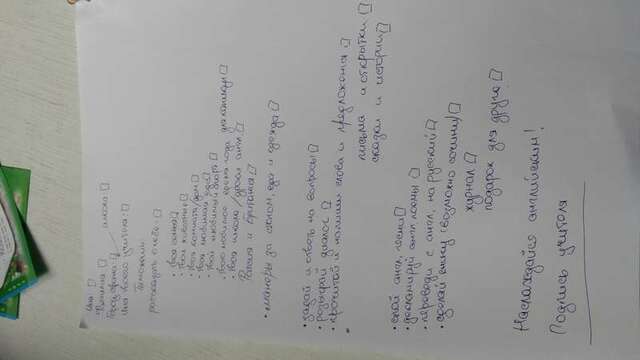 Имя: □
Фамилия □ школа: □
Город/страна: □
имя твоего учителя: □
расскажи о себе: □
• твоя семья □
• твои животные □
• твоя комната/дом □
• твоя любимая еда □
• твой любимый спорт □
• твоё любимое время года для каникул □
• твоя школа / уроки англ. □
Россия и Британия □
• манеры за столом, еда и одежда □
• задай и ответь на вопросы □
• разыграй диалог □
• прочитай и напиши слова и предложения □
письма и открытки □
сказки и истории □
• спой англ. песни □
• декламируй англ поэмы □
• переведи с англ. на русский □
• сделай книгу (возможно сочини) □
журнал □
подарок для друга □
Наслаждайся английским!
Подпись учителя